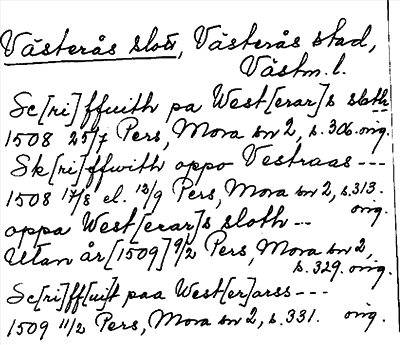 Västerås slott, Västerås stad,
Västm. l.
Sc[ri]ffuith pa West[erar]s sloth
1508 25/7 Pers, Mora sn 2, s. 306. orig.
Sk[ri]ffwith oppo Vestraas ---
1508 17/8 el. 13/9 Pers, Mora sn 2, s. 313.
orig.
oppa West[erar]s sloth --
Utan år [1509] 9/2 Pers, Mora sn 2,
s. 329. orig.
Sc[ri]ff[ui]t paa West[er]arss ---
1509 11/2 Pers, Mora sn 2, s. 331. orig.